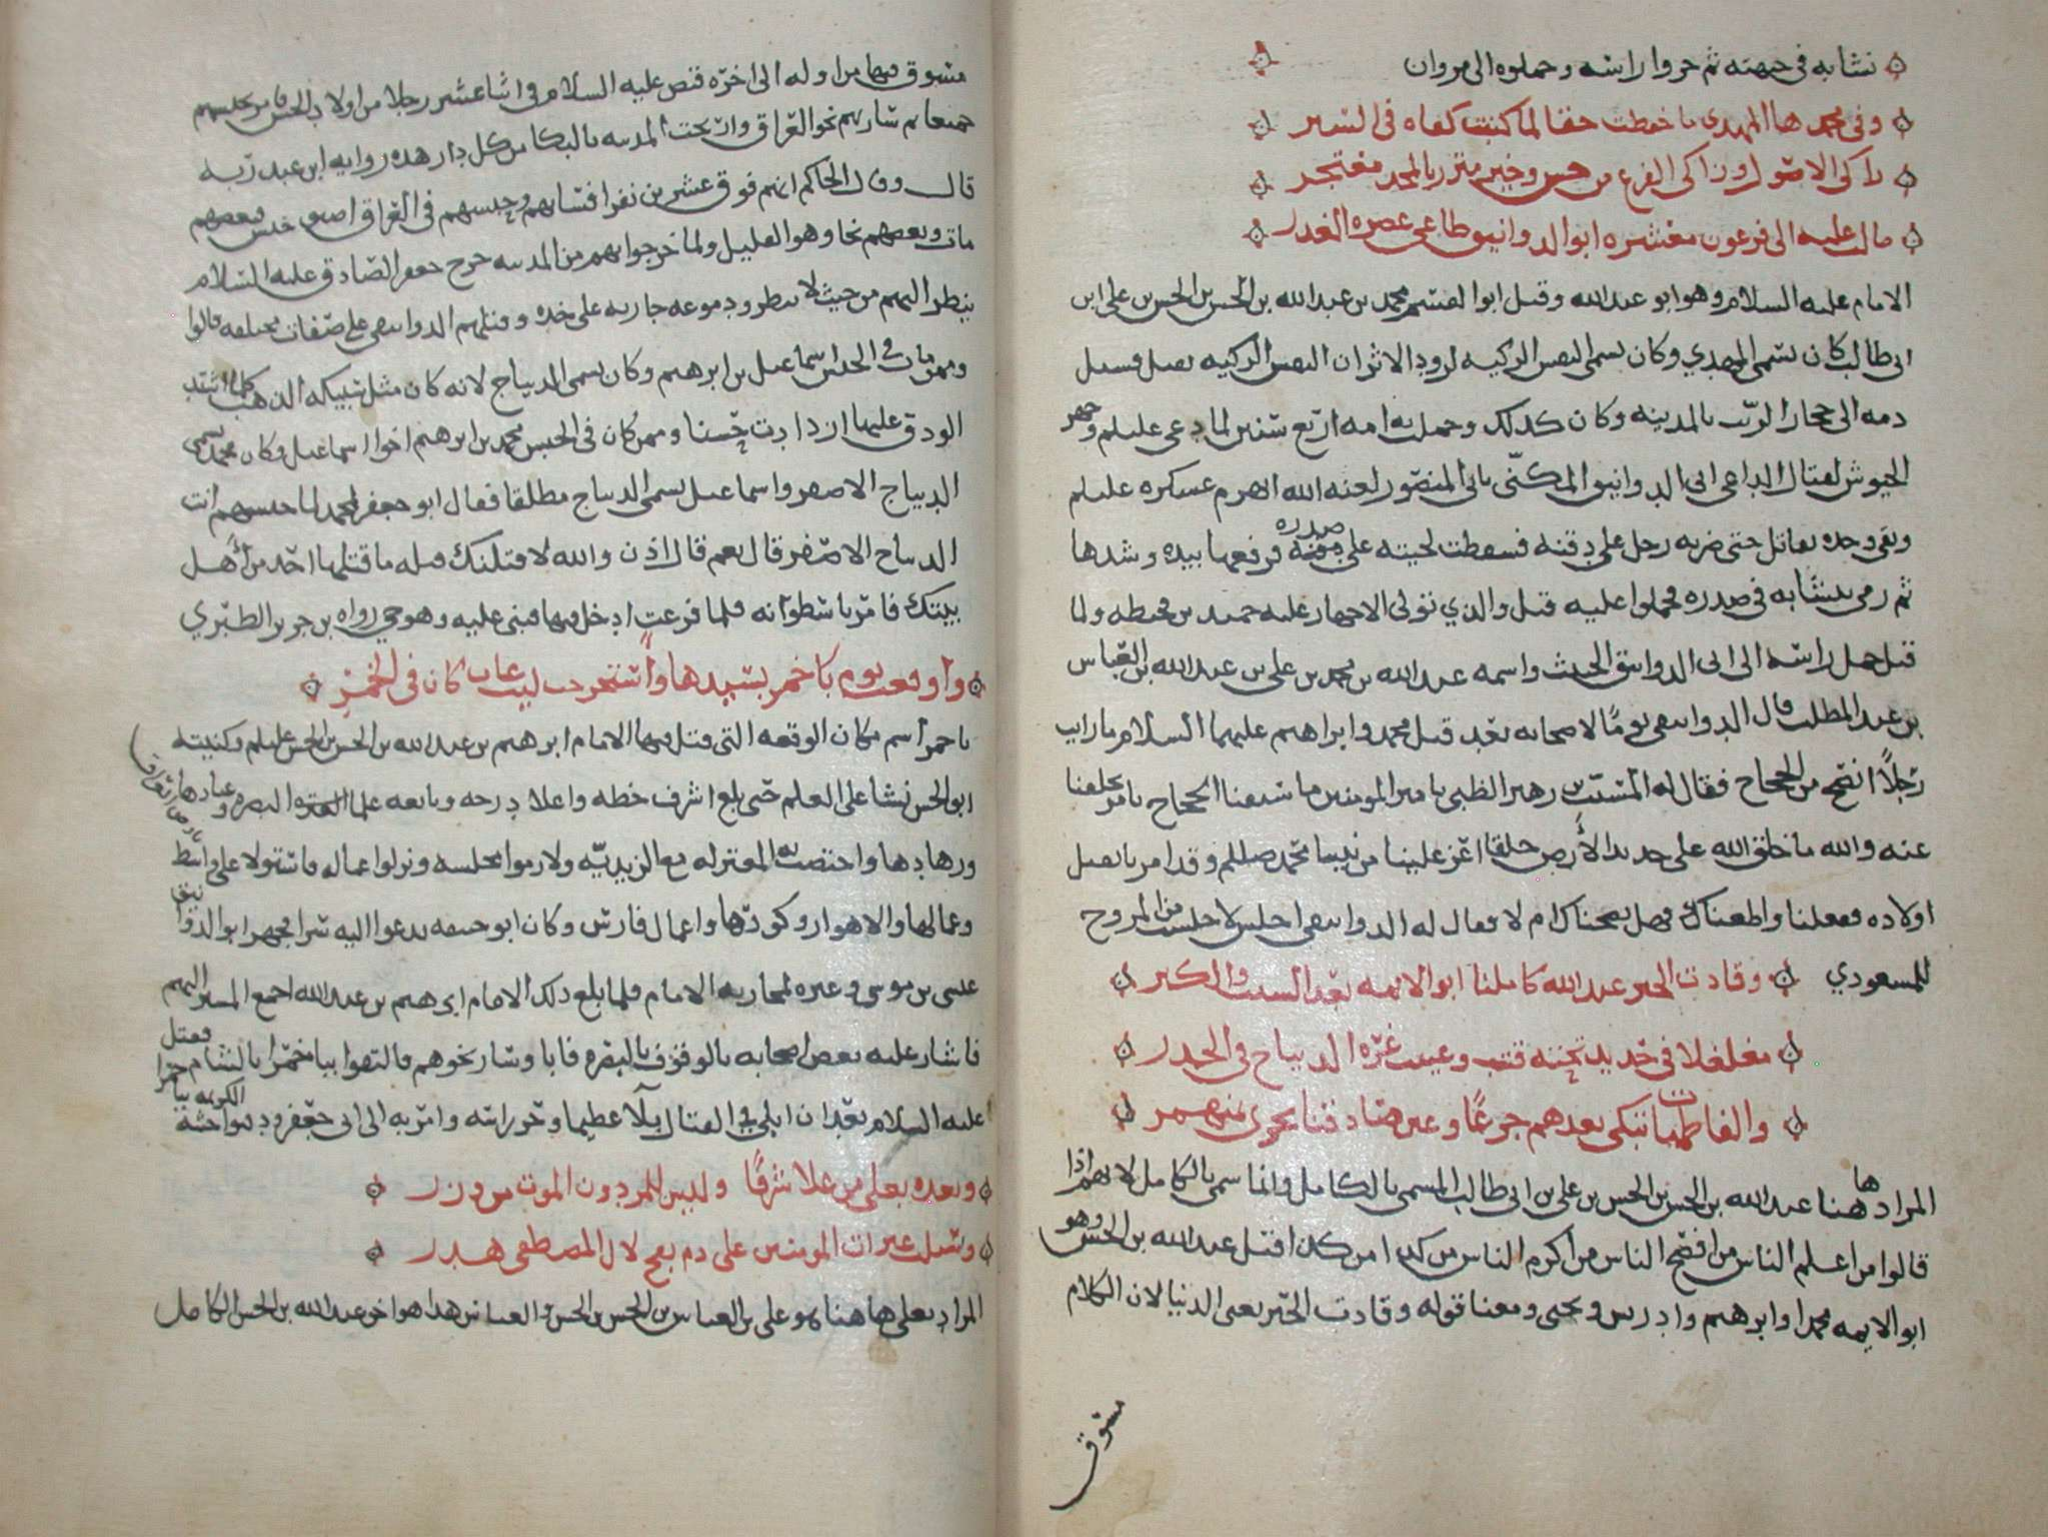 نشابه في جبهته ثم حزوا راسه وحملوه الى مروان
وفي محمدها المهدي ما حفظت حقا لما كتبت كفاه في السير
زاكي الاصول وزاكي الفرع من حسن وخير متزر بالمجد معتجر
مالت عليه الى فرعون معشره ابو الدوانيق طاغي عصره الغدر
الامام عليه السلام وهو ابو عبدالله وقيل ابو القسم محمد بن عبدالله بن الحسن بن الحسن بن علي ابن
ابي طالب كان يسمى المهدي وكان يسمى النفس الزكيه لورود الاثر ان النفس الزكيه يقتل فيسيل
دمه الى حجار الزيت بالمدينه وكان كذلك وحملت به امه اربع سنين لما دعى عليلم وجهز
الجيوش لقتال الداعي ابي الدوانيق المكنّى بابي المنصور لعنه الله انهزم عسكره عليلم
وبقى وحده يقاتل حتى ضربه رجل على دقنه فسقطت لحيته على صدره فرفعها بيده وشدها
ثم رمى بنشابه في صدره فحملوا عليه قتل والذي تولى الاجهاز عليه حميد بن قحطبه ولما
قتل حمل راسه الى ابي الدوانيق الخبيث واسمه عبدالله بن محمد بن علي بن عبدالله بن العباس
بن عبد المطلب قال الدوانيقي يومًا لاصحابه بعد قتل محمد وابراهيم عليهما السلام ما رايت
رجلًا انصح من الحجاج فقال له المسيّب بن زهير الظبي يا امير المومنين ما سبقنا الحجاج بامر تخلفنا
عنه والله ما خلق الله على جديد الأرض خلقا اعز علينا من نبينا محمد صللم وقد امرنا بقتل
اولاده ففعلنا واطعناك فهل نصحناك ام لا فقال له الدوانيقي اجلس لا جلست من المروج
للمسعودي وقادت الحبر عبدالله كاملنا ابو الايمه بعد السبت والكبر
مغلغلا في حديد تحته قتب وغيبت غرّه الديباج في الحدر
والفاطميات تبكي بعدهم جزعًا وعين صادقنا تجرى بمنهمر
المراد هاهنا عبدالله بن الحسن بن الحسن بن علي بن ابي طالب المسمى بالكامل وانما سمي بالكامل لانهم اذا
قالوا من اعلم الناس من افصح الناس من اكرم الناس من كذا من كذا قتل عبدالله بن الحسن وهو
ابو الايمه محمدا وابرهيم وادريس ويحيى ومعنا قوله وقادت الحبر يعنى الدنيا لان الكلام
مسوق
مسوق فيها من اوله الى اخره قبض عليه السلام في اثنا عشر رجلا من اولاد الحسن فامر بحبسهم
جميعا ثم سار بهم نحو العراق وارتجت المدينه بالبكا من كل دار هذه روايه ابن عبد ربه
قال وقال الحاكم انهم فوق عشرين نفرا فسار بهم وحبسهم في العراق اضيق حبس فبعضهم
مات وبعضهم نجا وهو القليل ولما خرجوا بهم من المدينه خرج جعفر الصادق عليه السلام
ينظر اليهم من حيث لا ينظر ودموعه جاريه على خده وقتلهم الدوانيقي على صفات مختلفه قالوا
وممن مات في الحبس اسماعيل بن ابرهيم وكان يسمى الديباج لانه كان مثل سبيكه الذهب كلما اشتد
الودق عليها ازدادت حسنا وممن كان في الحبس محمد بن ابرهيم اخوا اسماعيل وكان محمد يسمى
الديباج الاصفر واسماعيل يسمى الديباج مطلقا فقال ابو جعفر لمحمد لما حبسهم انت
الديباج الاصفر قال نعم قال اذن والله لاقتلنك قتله ما قتلها احد من أهل
بيتك فامر باسطوانه فلما فرغت ادخل فيها فبنى عليه وهو حي رواه بن جرير الطبري
واوقعت يوم باخمر بسيدها واستخرجت ليث غاب كان في الخمر
باخمرا اسم مكان الوقعه التي قتل فيها الامام ابرهيم بن عبدالله بن الحسن بن الحسن عليلم وكنيته
ابو الحسن نشا على العلم حتى بلغ اشرف خطه واعلا درجه وبايعه علما البصره وعبادها
وزهادها واختصت به المعتزله مع الزيديّه ولازموا مجلسه ونزلوا عماله فاستولا على واسط
وعمالها والاهواز وكورها واعمال فارس وكان ابو حنيفه يدعوا اليه سرا فجهز ابو الدوانيق
عيسى بن موسى وغيره لمحاربه الامام فلما بلغ ذلك الامام ابرهيم بن عبدالله اجمع المسير اليهم
فاشار عليه بعض اصحابه بالوقوف بالبصره فابا وسار نحوهم فالتقوا بباخمرا فقتل
عليه السلام بعد ان ابلي في القتال بلآ عظيما وحز راسه وامر به الى ابي جعفر ودفنوا جثته الكريمه بباخمرا
وبعده بعلي من علا شرفًا وليس للمردون الموت من وزر
وسيلت عبرات المومنين على دم بفخ لال المصطفى هدر
المراد بعلي هاهنا هو علي بن العباس بن الحسن بن الحسن والعباس هذا هو اخو عبدالله بن الحسن الكامل